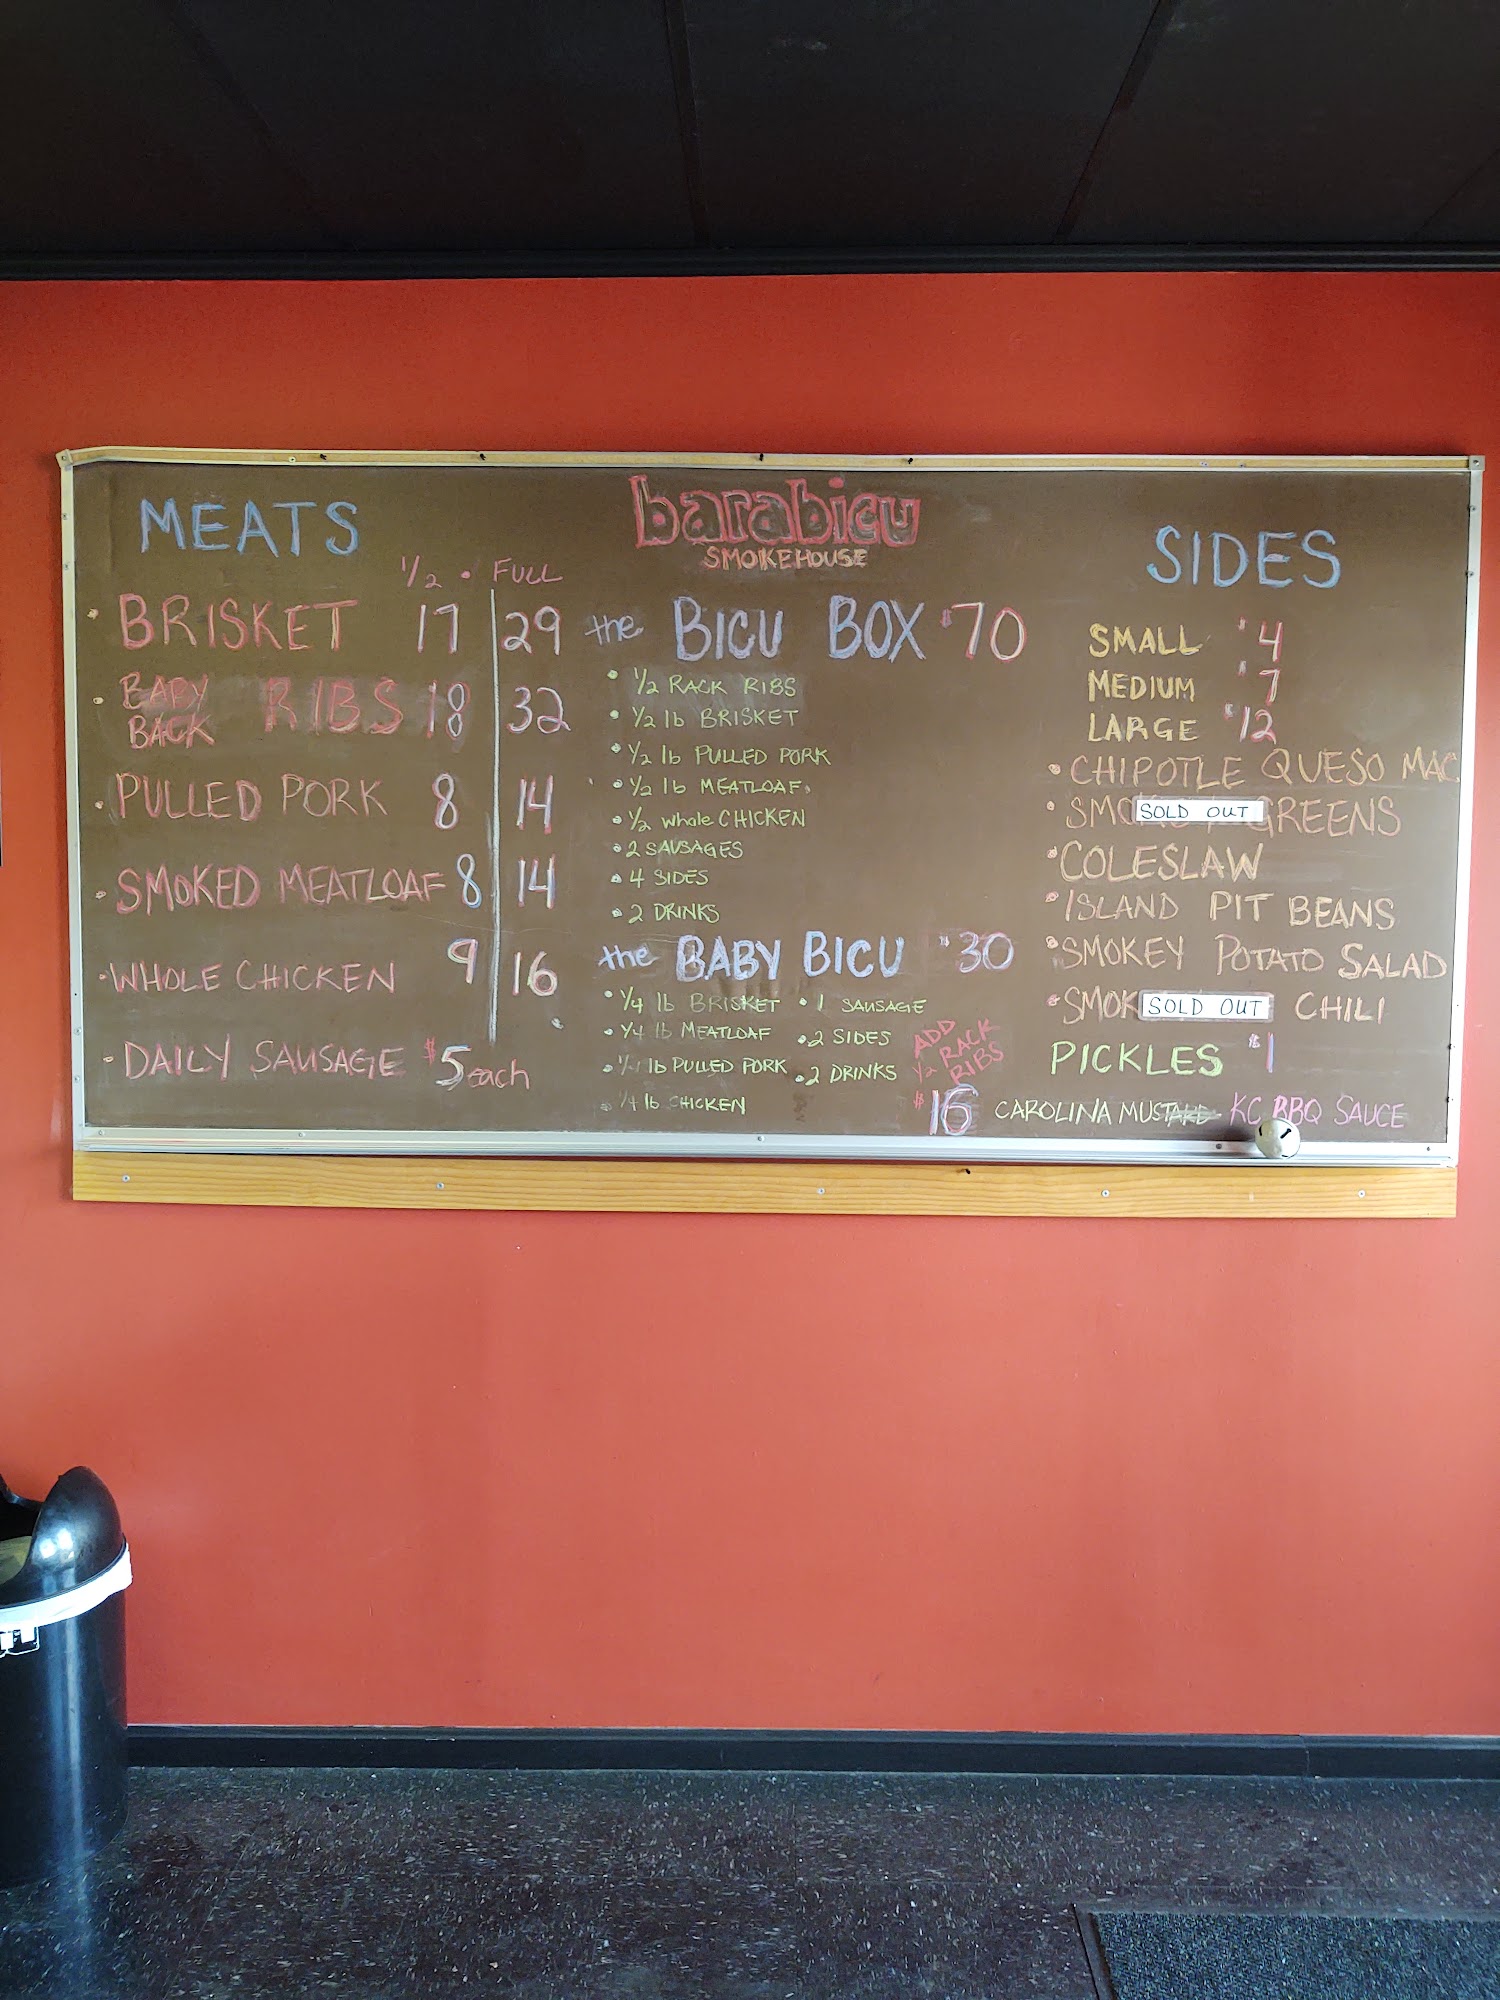 MEATS
1/2 • FULL
• BRISKET 17 29
• BABY BACK RIBS 18 32
• PULLED PORK 8 14
• SMOKED MEATLOAF 8 14
• WHOLE CHICKEN 9 16
• DAILY SAUSAGE $5 each
barabicu
SMOKEHOUSE
the BICU BOX $70
• 1/2 RACK RIBS
• 1/2 lb BRISKET
• 1/2 lb PULLED PORK
• 1/2 lb MEATLOAF
• 1/2 whole CHICKEN
• 2 SAUSAGES
• 4 SIDES
• 2 DRINKS
the BABY BICU $30
• 1/4 lb BRISKET
• 1/4 lb MEATLOAF
• 1/4 lb PULLED PORK
• 1/4 lb CHICKEN
• 1 SAUSAGE
• 2 SIDES
• 2 DRINKS
ADD
1/2 RACK
RIBS
$16
SIDES
SMALL $4
MEDIUM $7
LARGE $12
• CHIPOTLE QUESO MAC
• SMO SOLD OUT GREENS
• COLESLAW
• ISLAND PIT BEANS
• SMOKEY POTATO SALAD
• SMOK SOLD OUT CHILI
PICKLES $1
CAROLINA MUSTARD KC BBQ SAUCE